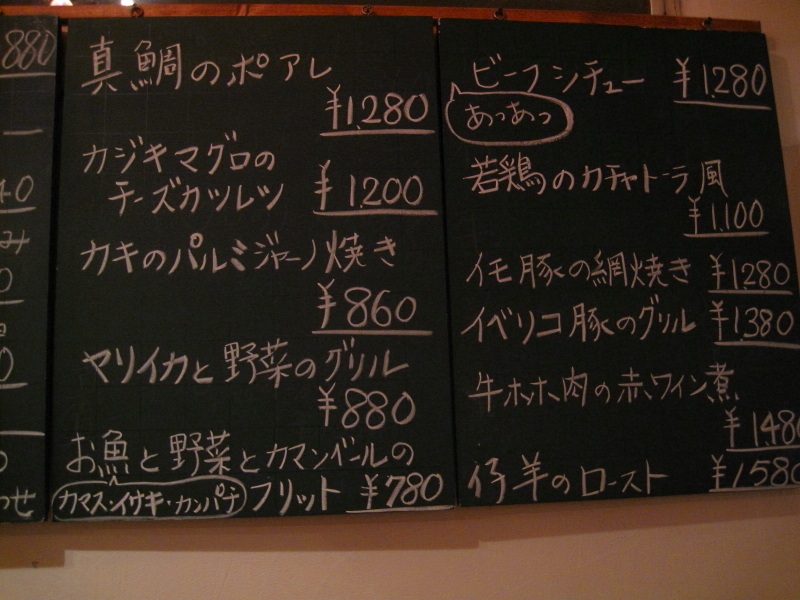 880
真鯛のポアレ
¥1,280
カジキマグロの
チーズカツレツ ¥1,200
カキのパルミジャーノ焼き
¥860
ヤリイカと野菜のグリル
¥880
お魚と野菜とカマンベールの
カマス・イサキ・カンパチ フリット ¥780
ビーフシチュー ¥1,280
あっあっ
若鶏のカチャトーラ風
¥1,100
イモ豚の網焼き ¥1,280
イベリコ豚のグリル ¥1,380
牛ホホ肉の赤ワイン煮
¥1,480
仔羊のロースト ¥1,580